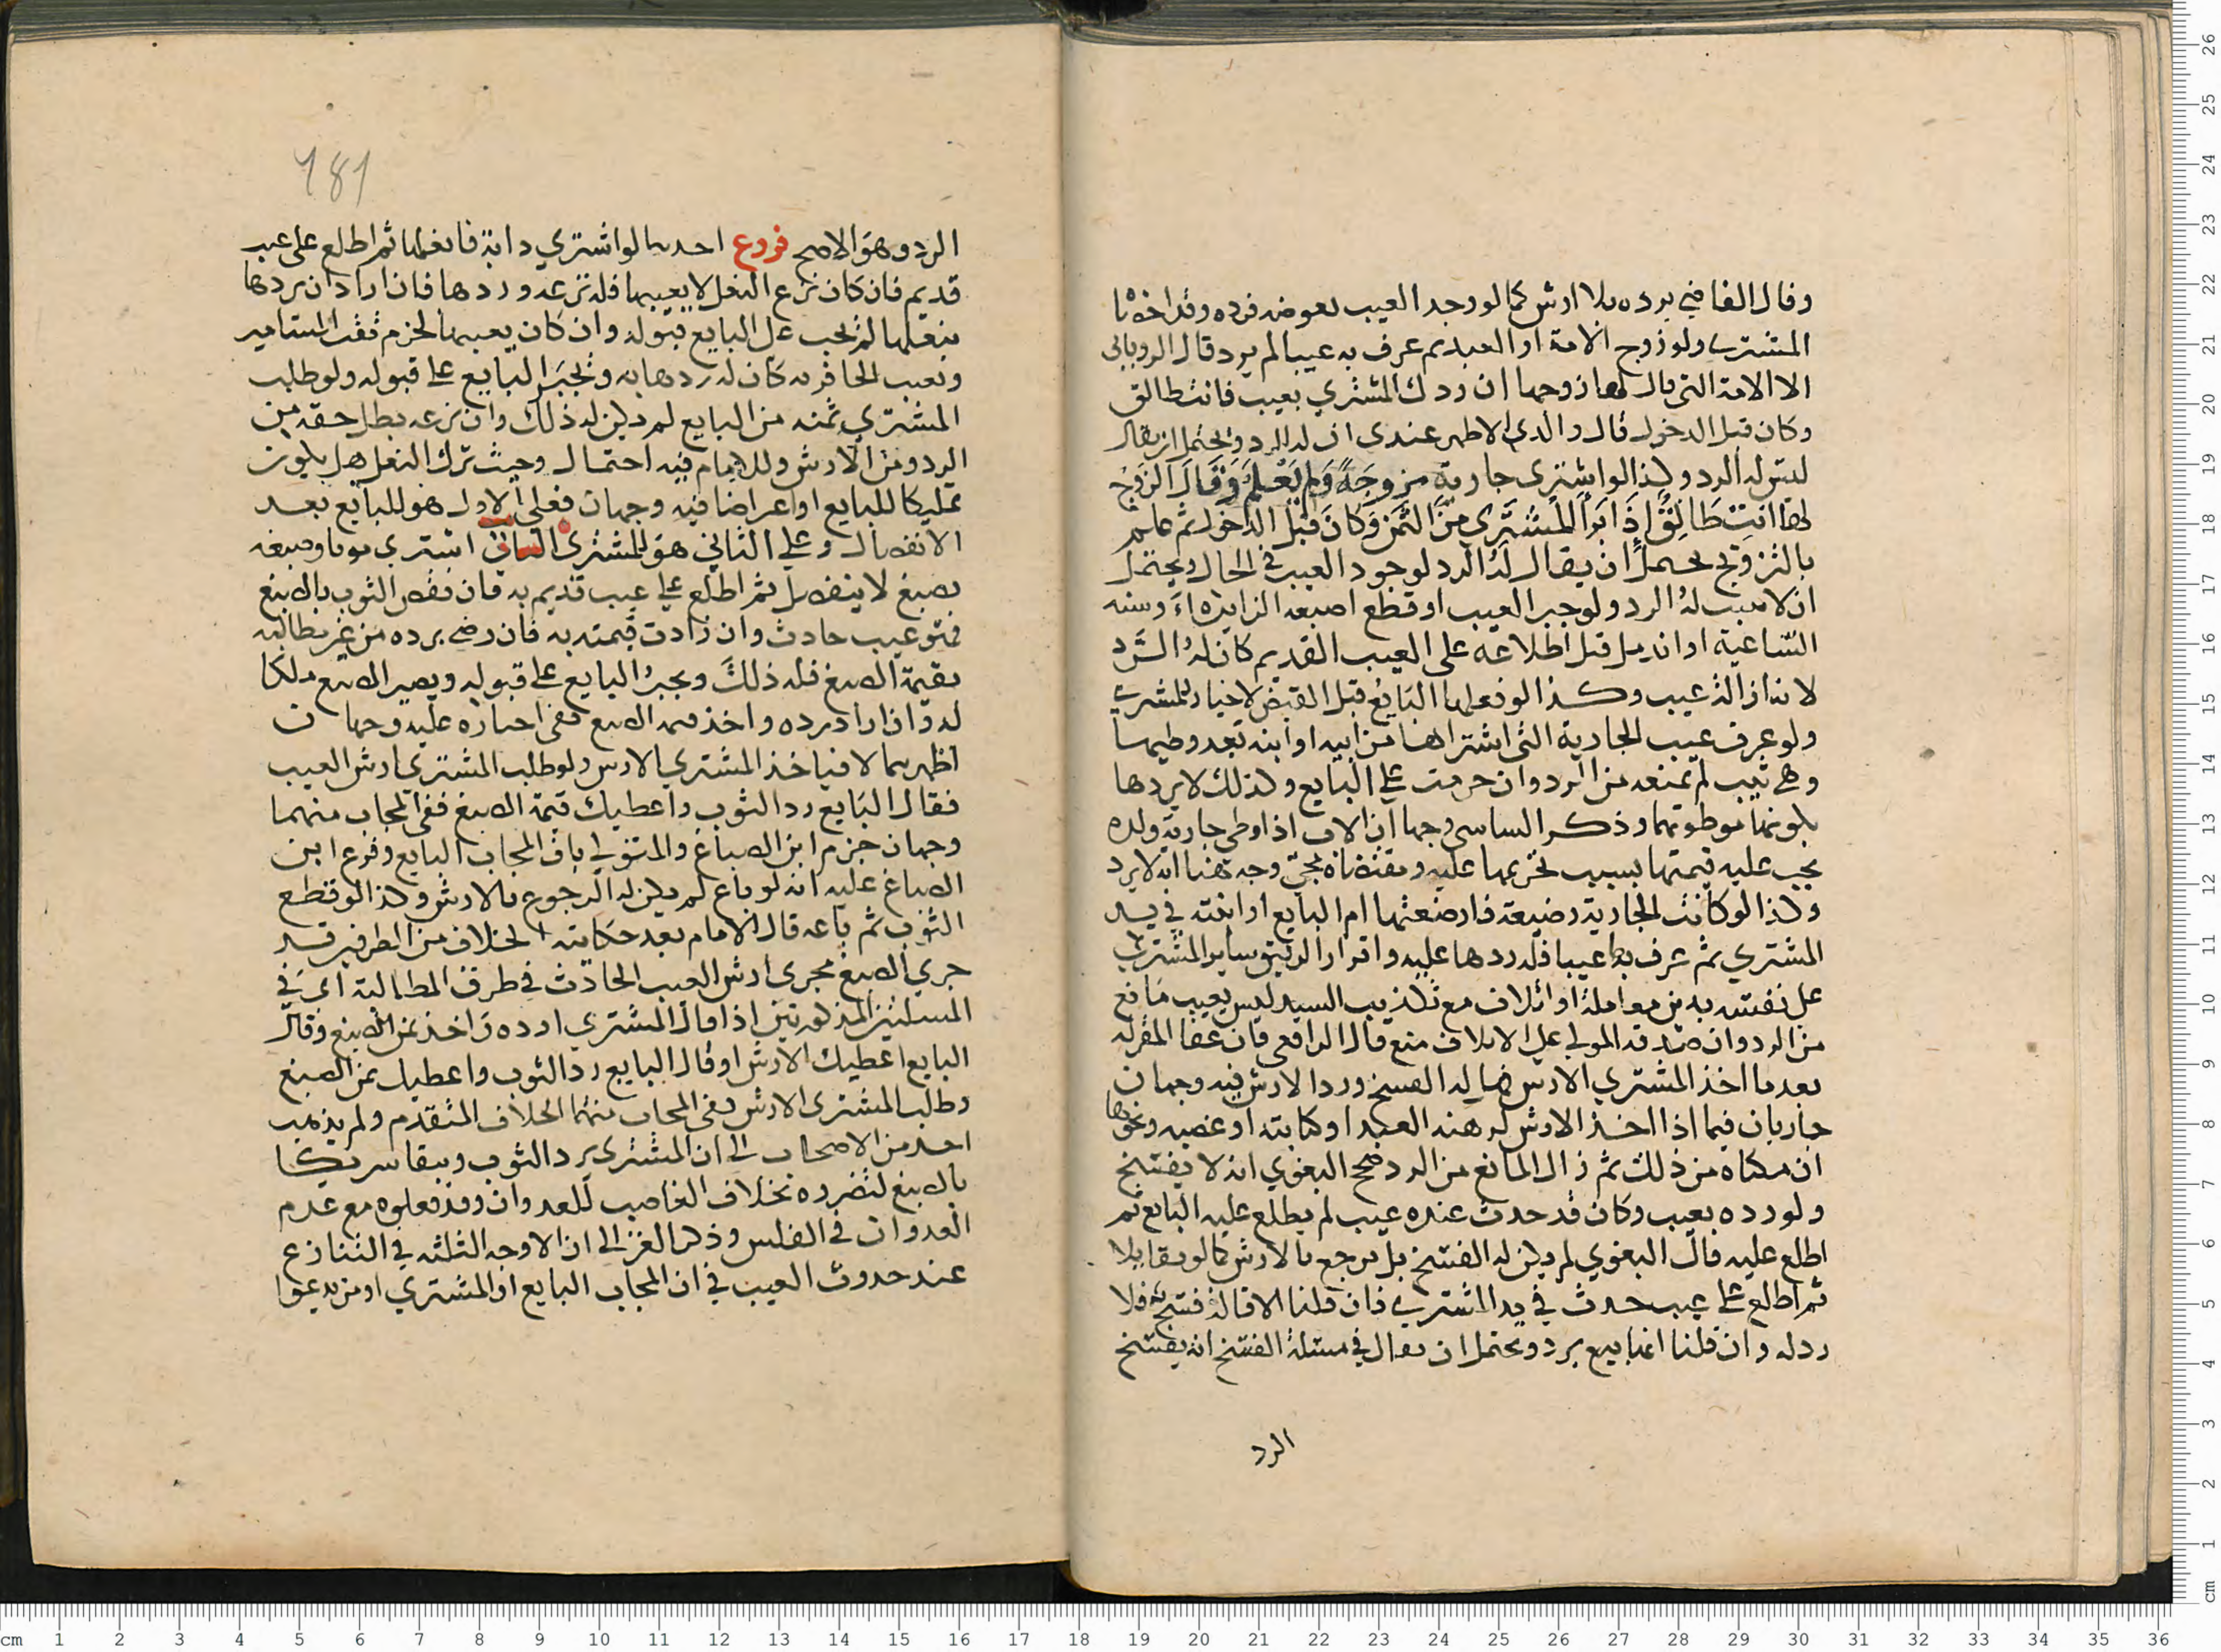 وقال القاضي يرده بلا ارش كما لو وجد العيب بعوضه فرده وقد اخذنا
المشتري ولو زوج الامة او العبد ثم عرف به عيبا لم يرد قال الروياني
الا الامة التي قال لها زوجها ان ردك المشتري بعيب فانت طالق
وكان قبل الدخول قال والدي الاظهر عندي ان له الرد ويحتمل ان يقال
ليس له الرد وكذا لو اشترى جارية مزوجة ولم يعلم وقال الزوج
لها انت طالق اذا ابرا المشتري من الثمن وكان قبل الدخول ثم علم
بالتزوج يحتمل ان يقال له الرد لوجود العيب في الحال ويحتمل
ان لا يثبت له الرد ولو جبر العيب او قطع اصبعه الزايدة او سنه
الشاغية او اندمل قبل اطلاعه على العيب القديم كان له الرد
لانه ازالة عيب وكذا لو فعلها البايع قبل القبض لا خيار للمشتري
ولو عرف عيب الجارية التي اشتراها من ابيه او ابنه بعد وطيها
وهي ثيب لم يمنعه من الرد وان حرمت على البايع وكذلك لا يردها
بكونها موطوتهما وذكر الشاشي وجها ان الاب اذا وطي جارية ولده
يجب عليه قيمتها بسبب تحريمها عليه ومقتضاه مجيء وجه هنا انه لا يرد
وكذا لو كانت الجارية رضيعة فارضعتها ام البايع او ابنته في يد
المشتري ثم عرف بها عيبا فله ردها عليه واقرار الرقيق ساير المشتري
على نفسه بدين معاملة او اتلاف مع تكذيب السيد ليس بعيب مانع
من الرد وان صدقه المولى على الاتلاف منع قال الرافعي فان عفا المقر له
بعد ما اخذ المشتري الارش فهل له الفسخ ورد الارش فيه وجهان
جاريان فيما اذا اخذ الارش لرهنه العبد او كتابته او غصبه ونحوها
ان مكناه من ذلك ثم زال المانع من الرد صحح البغوي انه لا يفسخ
ولو رده بعيب وكان قد حدث عنده عيب لم يطلع عليه البايع ثم
اطلع عليه قال البغوي لم يكن له الفسخ بل يرجع بالارش كما لو تقايلا
ثم اطلع على عيب حدث في يد المشتري فان قلنا الاقالة فسخ فلا
رد له وان قلنا انها بيع يرد ويحتمل ان يقال في مسئلة الفسخ انه يفسخ
الرد
181
الرد وهو الاصح فروع احدها لو اشترى دابة فانعلها ثم اطلع على عيب
قديم فان كان نزع النعل لا يعيبها فله نزعه وردها فان اراد ان يردها
بنعلها لم يجب على البايع قبوله وان كان يعيبها لخرم ثقب المسامير
وتعيب الحافر به كان له ردها به ويجبر البايع على قبوله ولو طلب
المشتري ثمنه من البايع لم يكن له ذلك وان نزعه بطل حقه من
الرد ومن الارش وللامام فيه احتمال وحيث ترك النعل هل يكون
تمليكا للبايع او اعراضا فيه وجهان فعلى الاول هو للبايع بعد
الانفصال وعلى الثاني هو للمشتري الثاني اشترى ثوبا وصبغه
بصبغ لا ينفصل ثم اطلع على عيب قديم به فان نقص الثوب بالصبغ
فهو عيب حادث وان زادت قيمته به فان رضي برده من غير مطالبه
بقيمة الصبغ فله ذلك ويجبر البايع على قبوله ويصير الصبغ ملكا
له وان اراد رده واخذ قيمة الصبغ ففي اجباره عليه وجهان
اظهرهما لا فياخذ المشتري الارش ولو طلب المشتري ارش العيب
فقال البايع رد الثوب واعطيك قيمة الصبغ ففي المجاب منهما
وجهان جزم ابن الصباغ والمتولي بان المجاب البايع وفرع ابن
الصباغ عليه انه لو باع لم يكن له الرجوع بالارش وكذا لو قطع
الثوب ثم باعه قال الامام بعد حكايته الخلاف من الطرفين قد
جري الصبغ مجرى ارش العيب الحادث في طرف المطالبة اي في
المسئلتين المذكورتين اذا قال المشتري ارده واخذ ثمن الصبغ وقال
البايع اعطيك الارش او قال البايع رد الثوب واعطيك ثمن الصبغ
وطلب المشتري الارش ففي المجاب منهما الخلاف المتقدم ولم يذهب
احد من الاصحاب الى ان المشتري يرد الثوب ويبقا شريكا
بالصبغ لتضرره بخلاف الغاصب للعدوان وقد فعلوه مع عدم
العدوان في الفلس وذكر الغزالي ان الاوجه الثلثة في التنازع
عند حدوث العيب في ان المجاب البايع او المشتري او من يدعوا